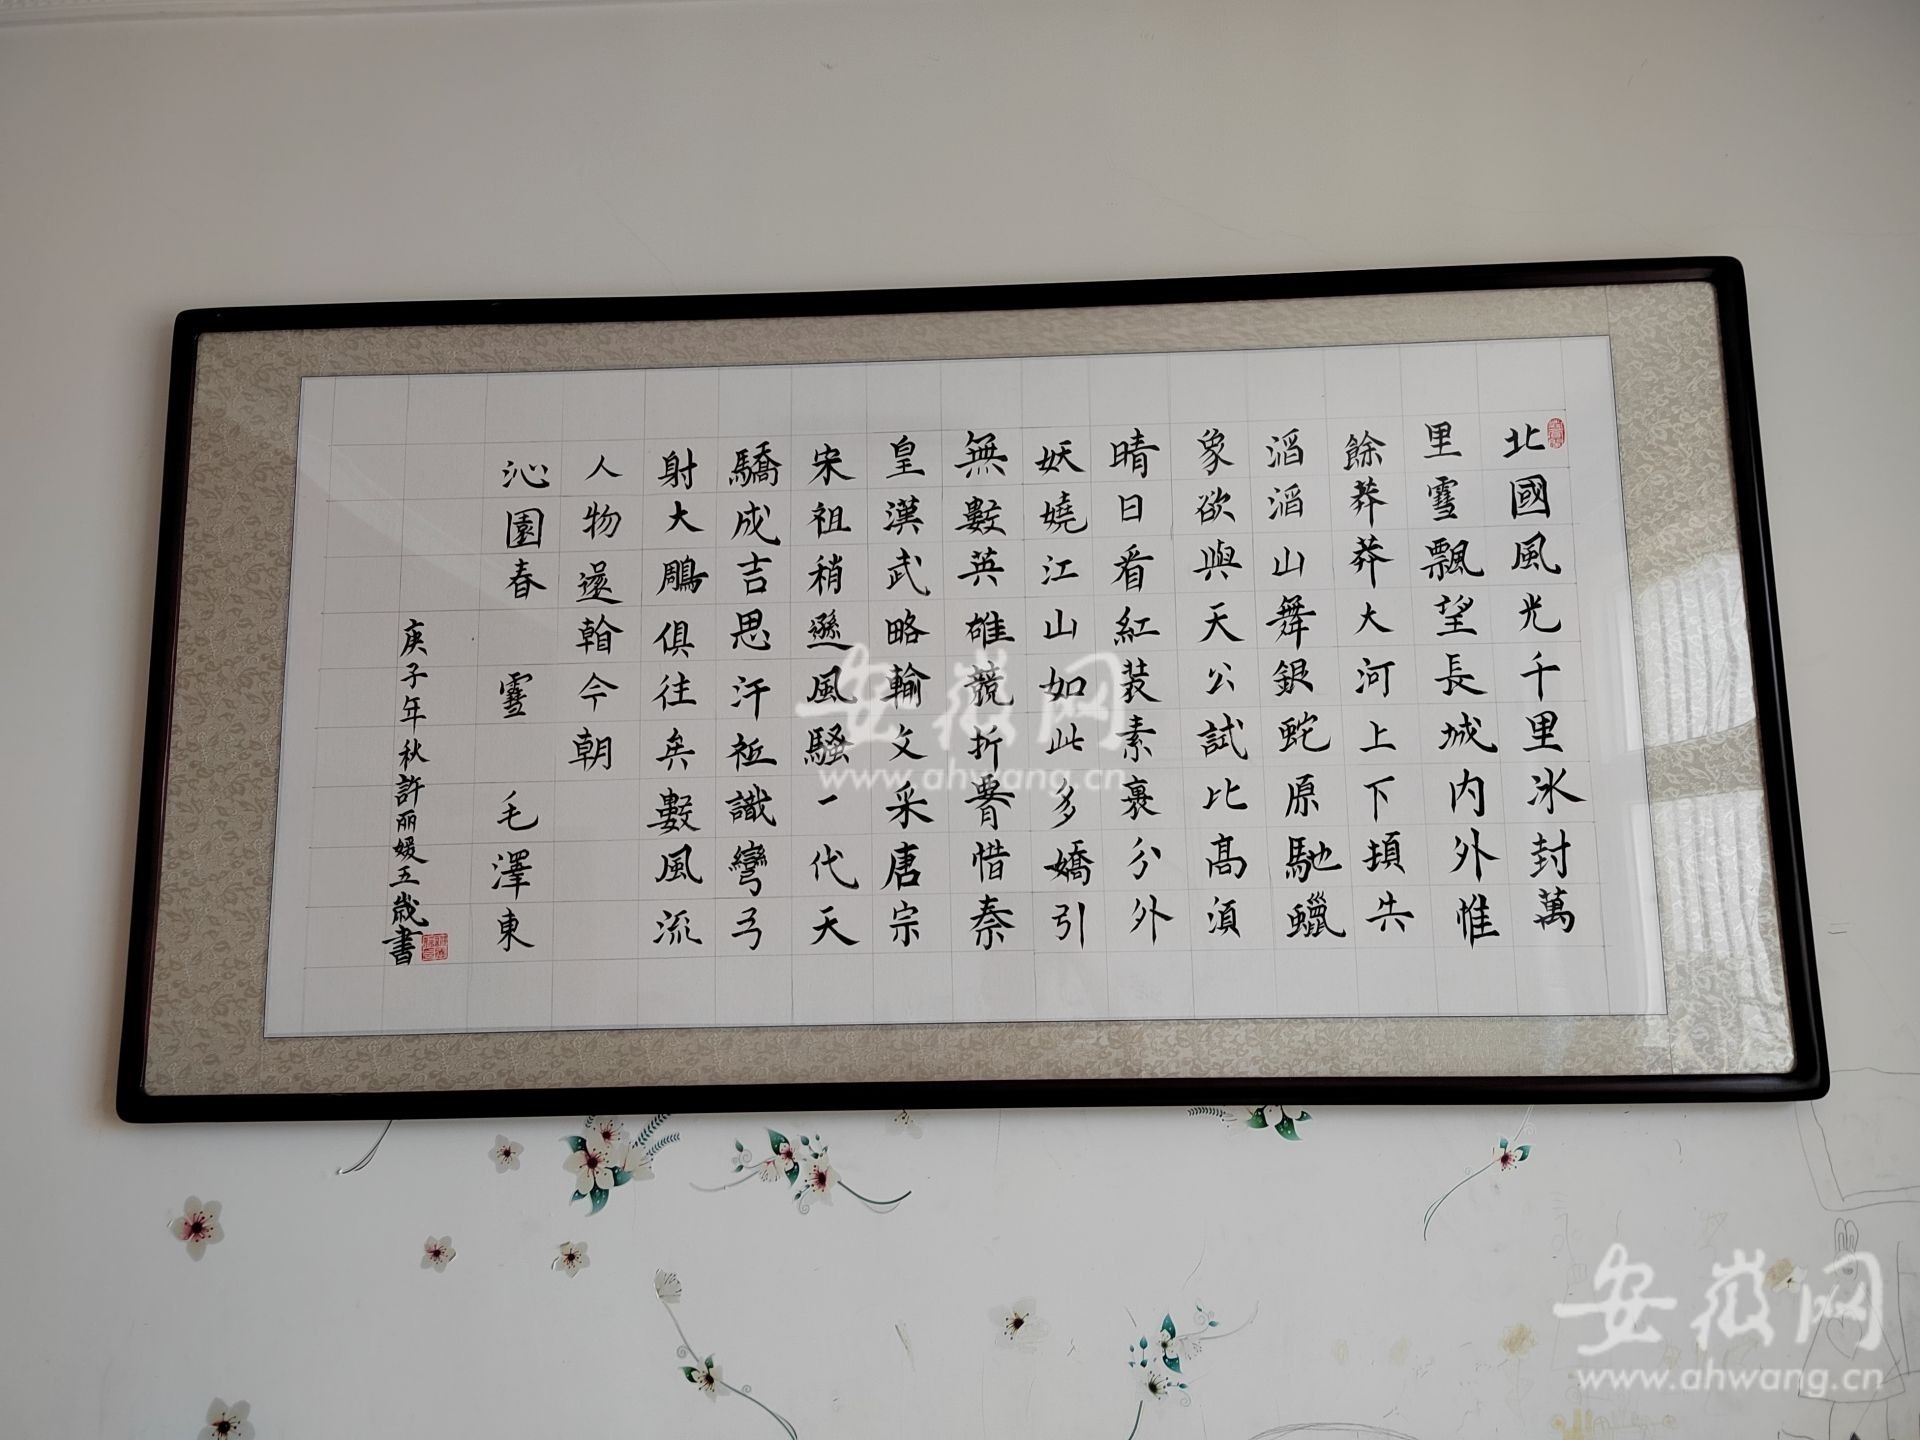 北國風光千里冰封萬
里雪飄望長城内外惟
餘莽莽大河上下頓失
滔滔山舞銀蛇原馳蠟
象欲與天公試比高須
晴日看紅装素裹分外
妖嬈江山如此多嬌引
無數英雄競折腰惜秦
皇漢武略輸文采唐宗
宋祖稍遜風騷一代天
驕成吉思汗祗識彎弓
射大鵰俱往矣數風流
人物還看今朝
沁園春 雪 毛澤東
庚子年秋許丽媛五歲書
安徽网
www.ahwang.cn
安徽网
www.ahwang.cn